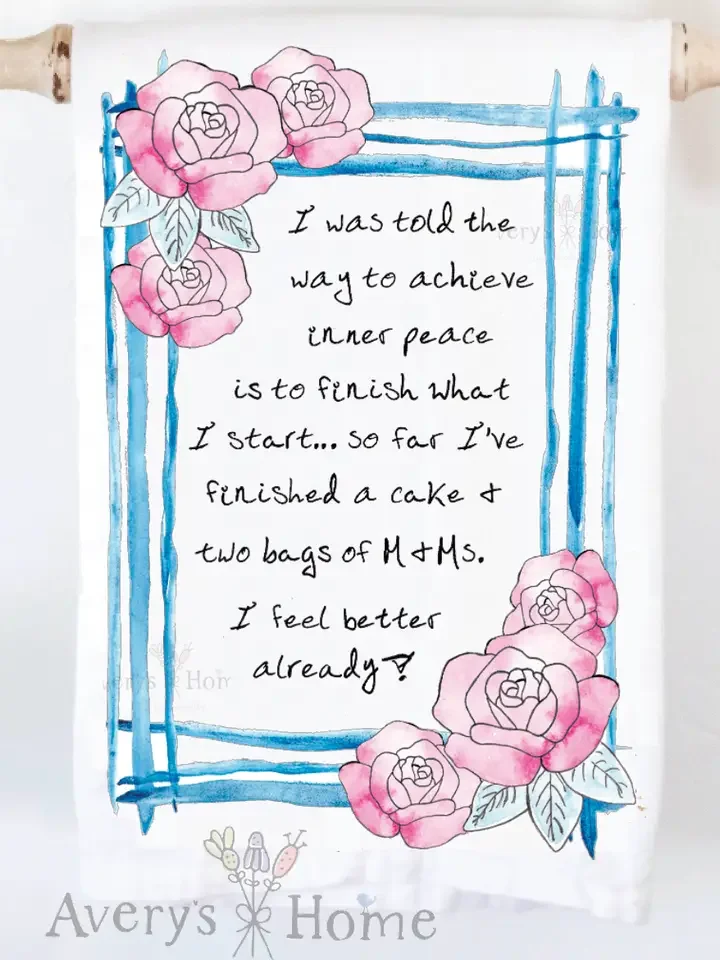 I was told the
way to achieve
inner peace
is to finish what
I start... so far I've
finished a cake &
two bags of M&Ms.
I feel better
already!
Avery's Home